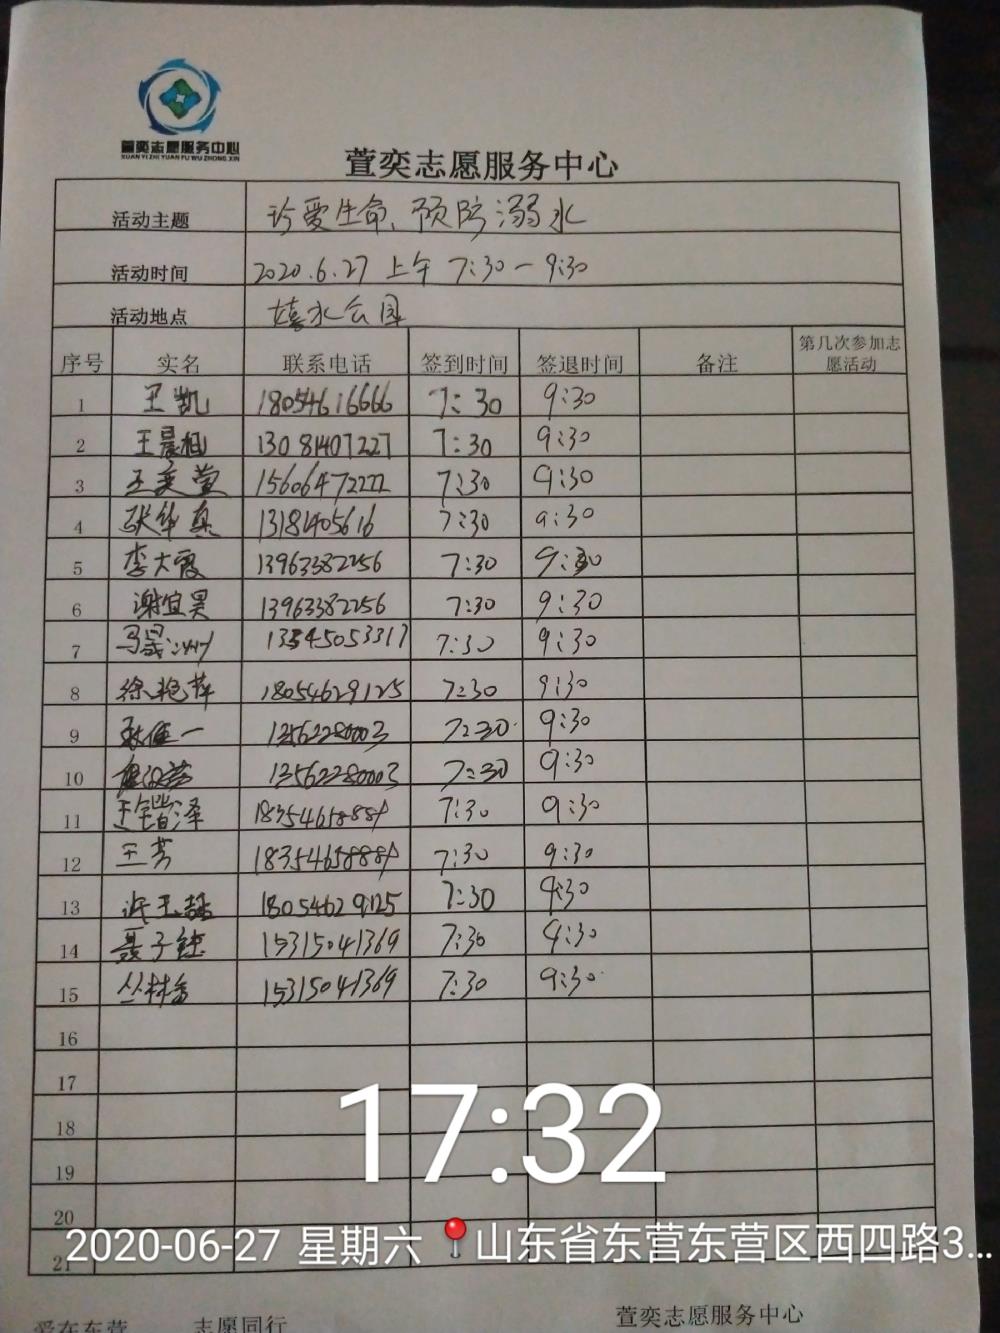 萱奕志愿服务中心
XUAN YI ZHI YUAN FU WU ZHONG XIN
萱奕志愿服务中心
活动主题 珍爱生命、预防溺水
活动时间 2020.6.27 上午 7:30-9:30
活动地点 嬉水公园
序号 实名 联系电话 签到时间 签退时间 备注 第几次参加志愿活动
1 王凯 18054616666 7:30 9:30
2 王晨旭 13081407227 7:30 9:30
3 王奕萱 15606472222 7:30 9:30
4 7:30 9:30
5 李大霞 13963382256 7:30 9:30
6 谢宜昊 13963382256 7:30 9:30
7 7:30 9:30
8 徐艳萍 18054629125 7:30 9:30
9 13562280003 7:30 9:30
10 13562280003 7:30 9:30
11 7:30 9:30
12 王芳 7:30 9:30
13 18054629125 7:30 9:30
14 聂子钰 15315041369 7:30 9:30
15 丛林香 15315041369 7:30 9:30
16
17
17:32
18
19
20
2020-06-27 星期六 山东省东营东营区西四路3...
21
爱在东营 志愿同行 萱奕志愿服务中心